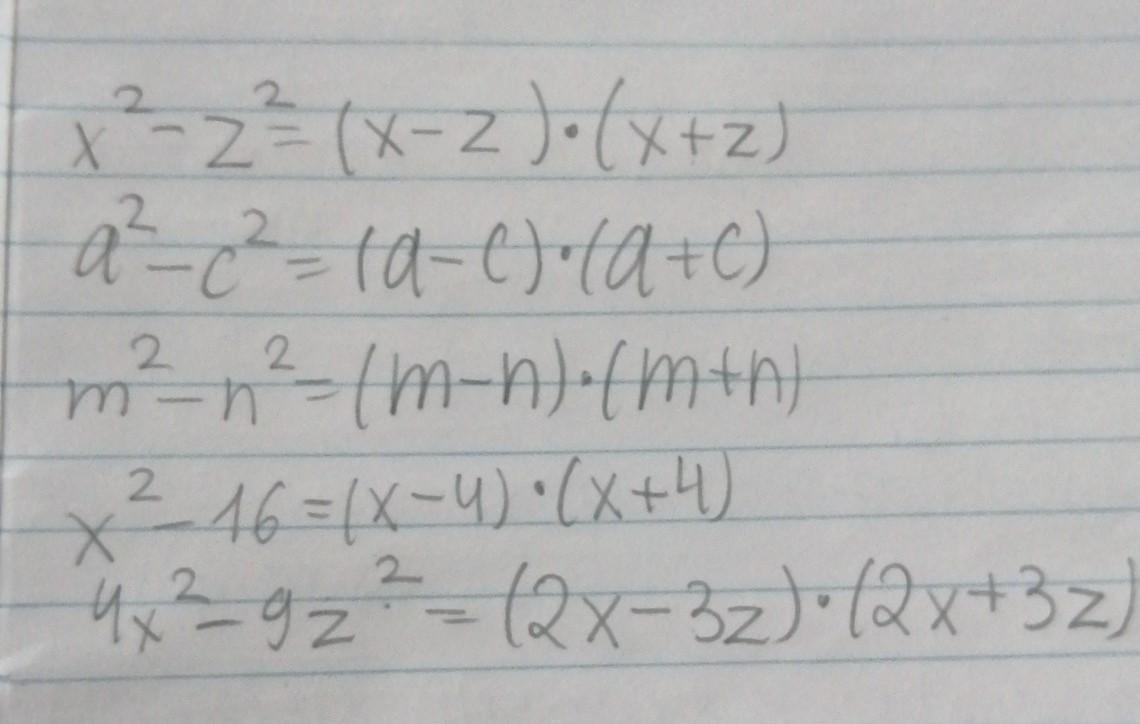 x²-z²=(x-z)·(x+z)
a²-c²=(a-c)·(a+c)
m²-n²=(m-n)·(m+n)
x²-16=(x-4)·(x+4)
4x²-9z²=(2x-3z)·(2x+3z)